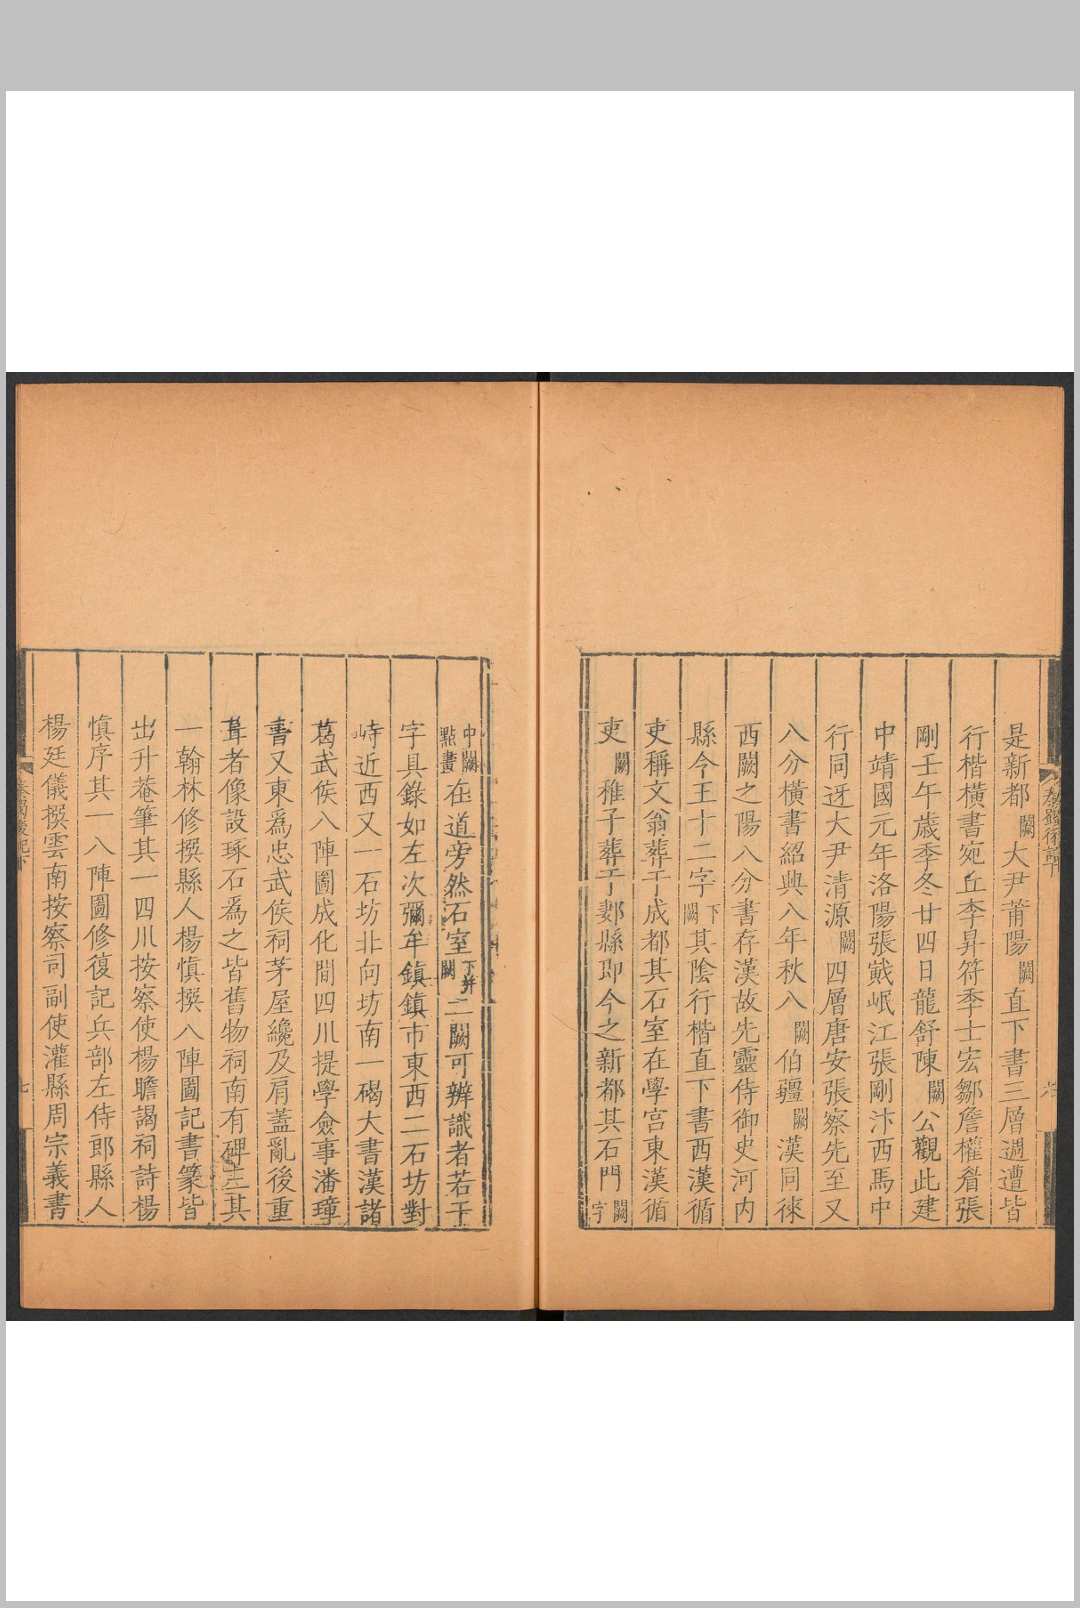 是新都闕大尹莆陽闕直下書三層週遭皆
行楷橫書宛丘李昇符季士宏鄒詹權眘張
剛壬午歲季冬廿四日龍舒陳闕公觀此建
中靖國元年洛陽張戭岷江張剛汴西馬中
行同迓大尹清源闕四層唐安張察先至又
八分橫書紹興八年秋八闕伯疆闕漢同徠
西闕之陽八分書存漢故先靈侍御史河內
縣令王十二字下闕其陰行楷直下書西漢循
吏稱文翁葬于成都其石室在學宮東漢循
吏闕稚子葬于郪縣即今之新都其石門闕字
中闕點畫在道旁然石室下并闕二闕可辨識者若干
字具錄如左次彌牟鎮鎮市東西二石坊對
峙近西又一石坊北向坊南一碣大書漢諸
葛武侯八陣圖成化間四川提學僉事潘璋
書又東為忠武侯祠茅屋纔及肩蓋亂後重
葺者像設琢石為之皆舊物祠南有碑三其
一翰林修撰縣人楊慎撰八陣圖記書篆皆
出升菴筆其一四川按察使楊瞻謁祠詩楊
慎序其一八陣圖修復記兵部左侍郎縣人
楊廷儀撰雲南按察司副使灌縣周宗義書